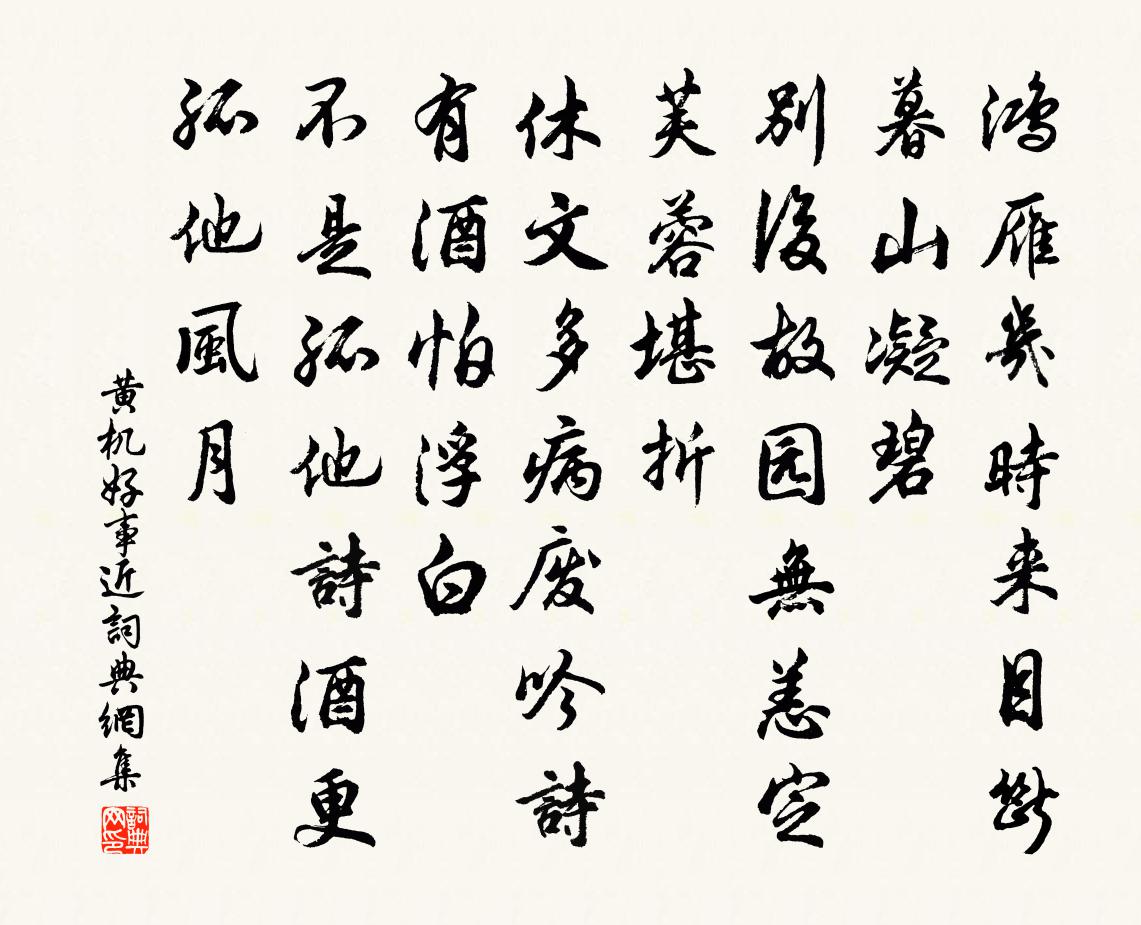 鴻雁幾時来目斷
暮山凝碧
别後故园無恙定
芙蓉堪折
休文多病废吟詩
有酒怕浮白
不是孤他詩酒更
孤他風月
黄机好事近詞典網集
詞典网印